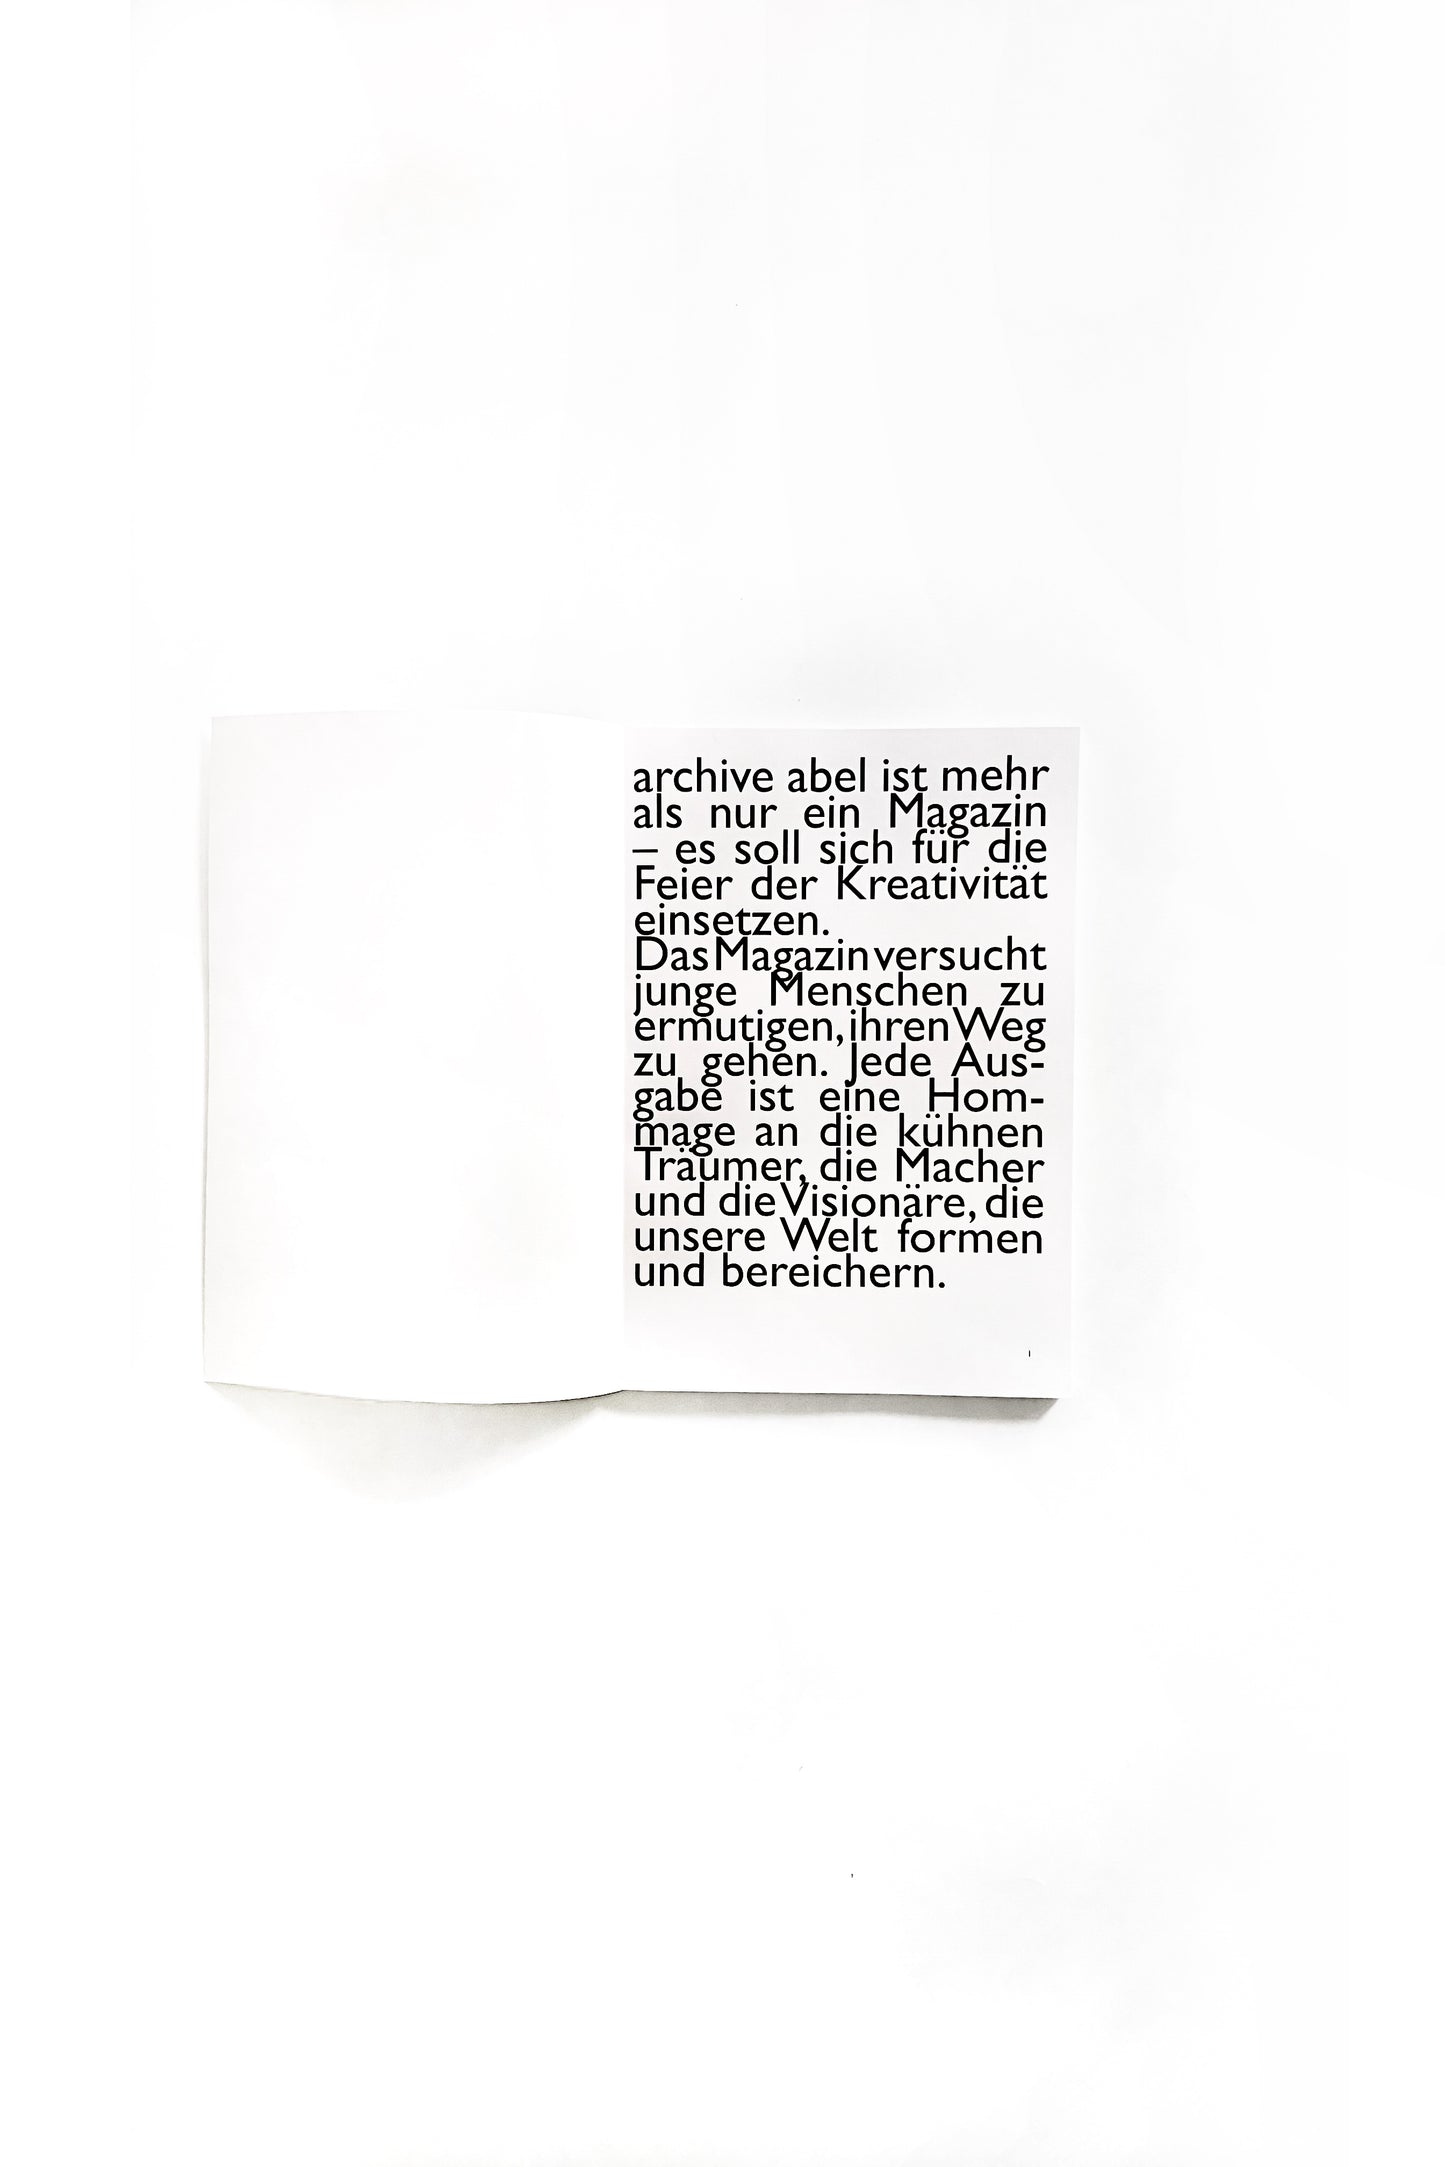 archive abel ist mehr
als nur ein Magazin
– es soll sich für die
Feier der Kreativität
einsetzen.
Das Magazin versucht
junge Menschen zu
ermutigen, ihren Weg
zu gehen. Jede Aus-
gabe ist eine Hom-
mage an die kühnen
Träumer, die Macher
und die Visionäre, die
unsere Welt formen
und bereichern.
1